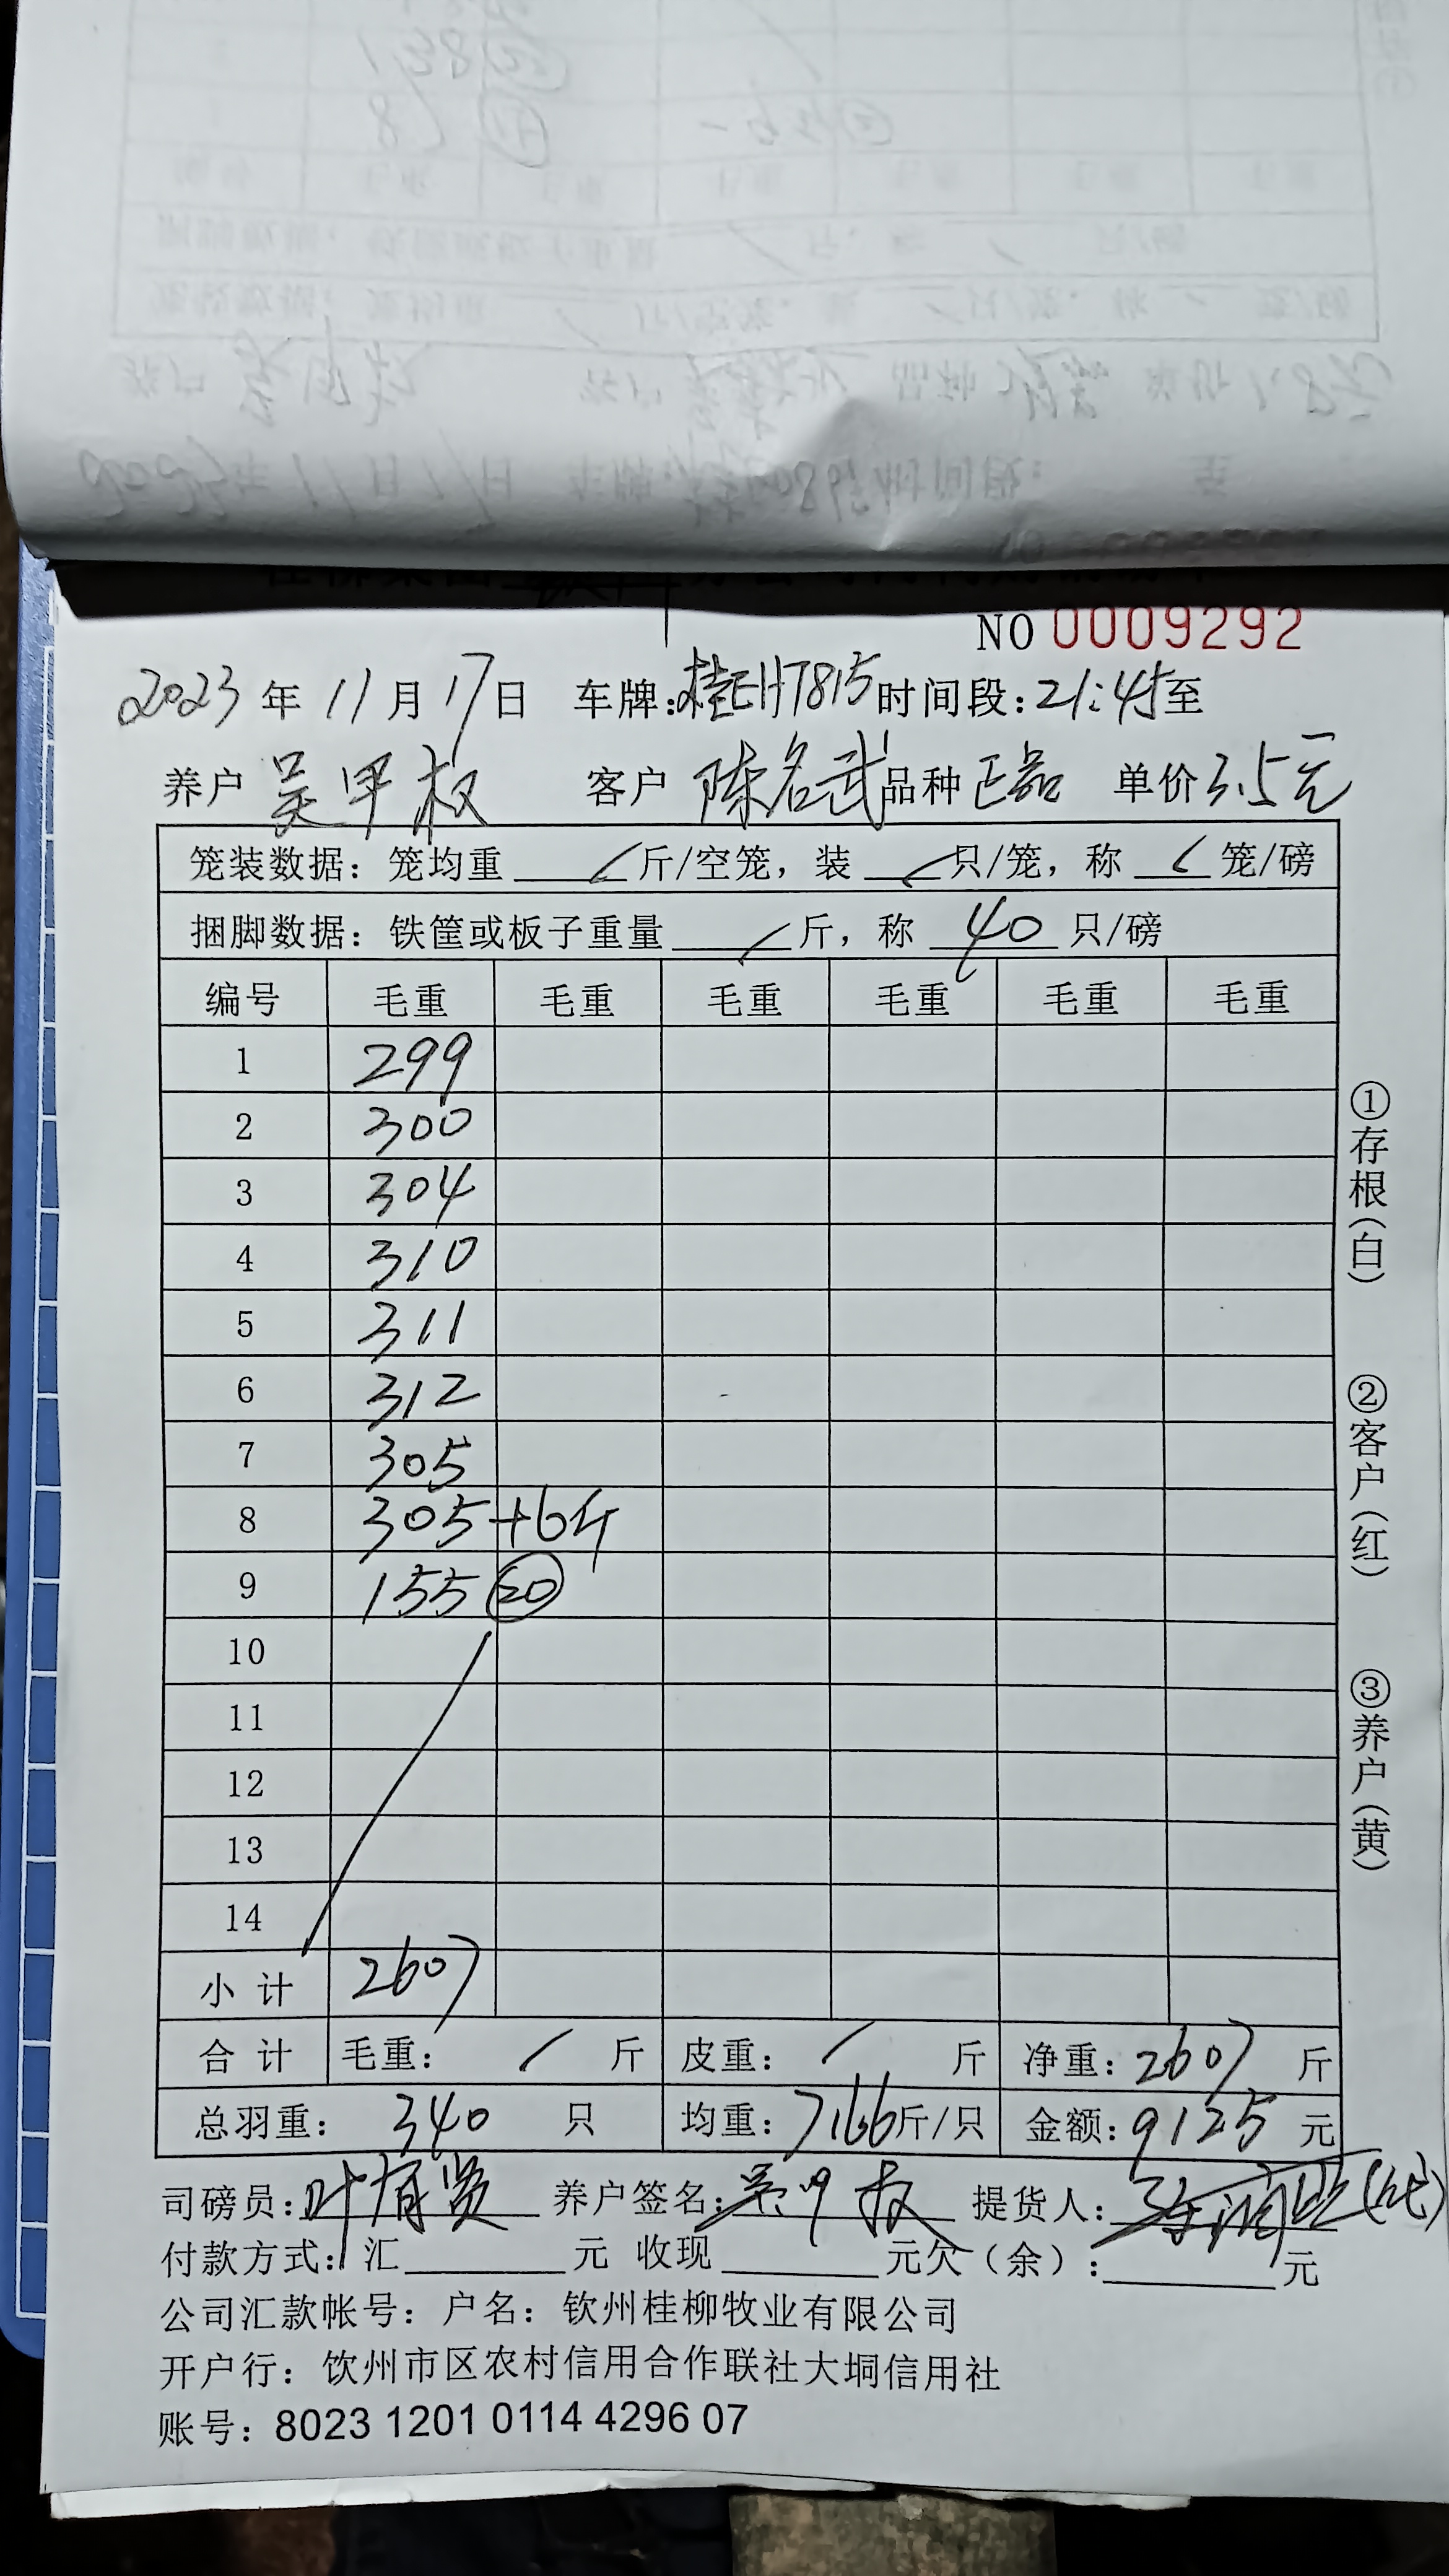 NO 0009292
2023 年 11 月 17 日 车牌:桂EH7815 时间段:21:45至
养户 吴甲权 客户 陈名武 品种 正品 单价 3.5元
笼装数据：笼均重 / 斤/空笼，装 / 只/笼，称 / 笼/磅
捆脚数据：铁筐或板子重量 / 斤，称 40 只/磅
编号 毛重 毛重 毛重 毛重 毛重 毛重
1 299
2 300
3 304
4 310
5 311
6 312
7 305
8 305+6斤
9 155 20
10
11
12
13
14
小计 2607
合计 毛重： / 斤 皮重： / 斤 净重：2607 斤
总羽重： 340 只 均重：7.66斤/只 金额：9125 元
司磅员:叶有贤 养户签名:吴甲权 提货人:
付款方式：汇 元 收现 元欠（余）: 元
公司汇款帐号：户名：钦州桂柳牧业有限公司
开户行：饮州市区农村信用合作联社大垌信用社
账号：8023 1201 0114 4296 07
①存根（白）
②客户（红）
③养户（黄）